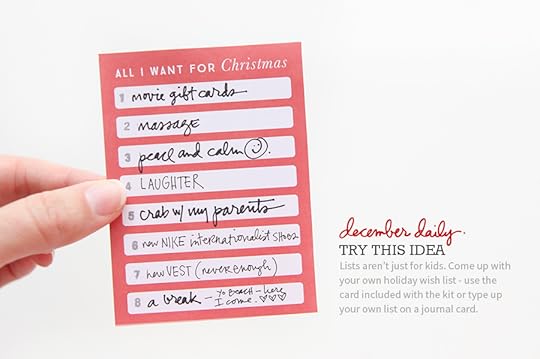 ALL I WANT FOR Christmas
1 movie gift cards
2 massage
3 peace and calm
4 LAUGHTER
5 crab w/ my parents
6 new NIKE internationalist SHOES
7 new VEST (never enough)
8 a break - yo BEACH - here
I come.
december daily.
TRY THIS IDEA
Lists aren't just for kids. Come up with
your own holiday wish list - use the
card included with the kit or type up
your own list on a journal card.